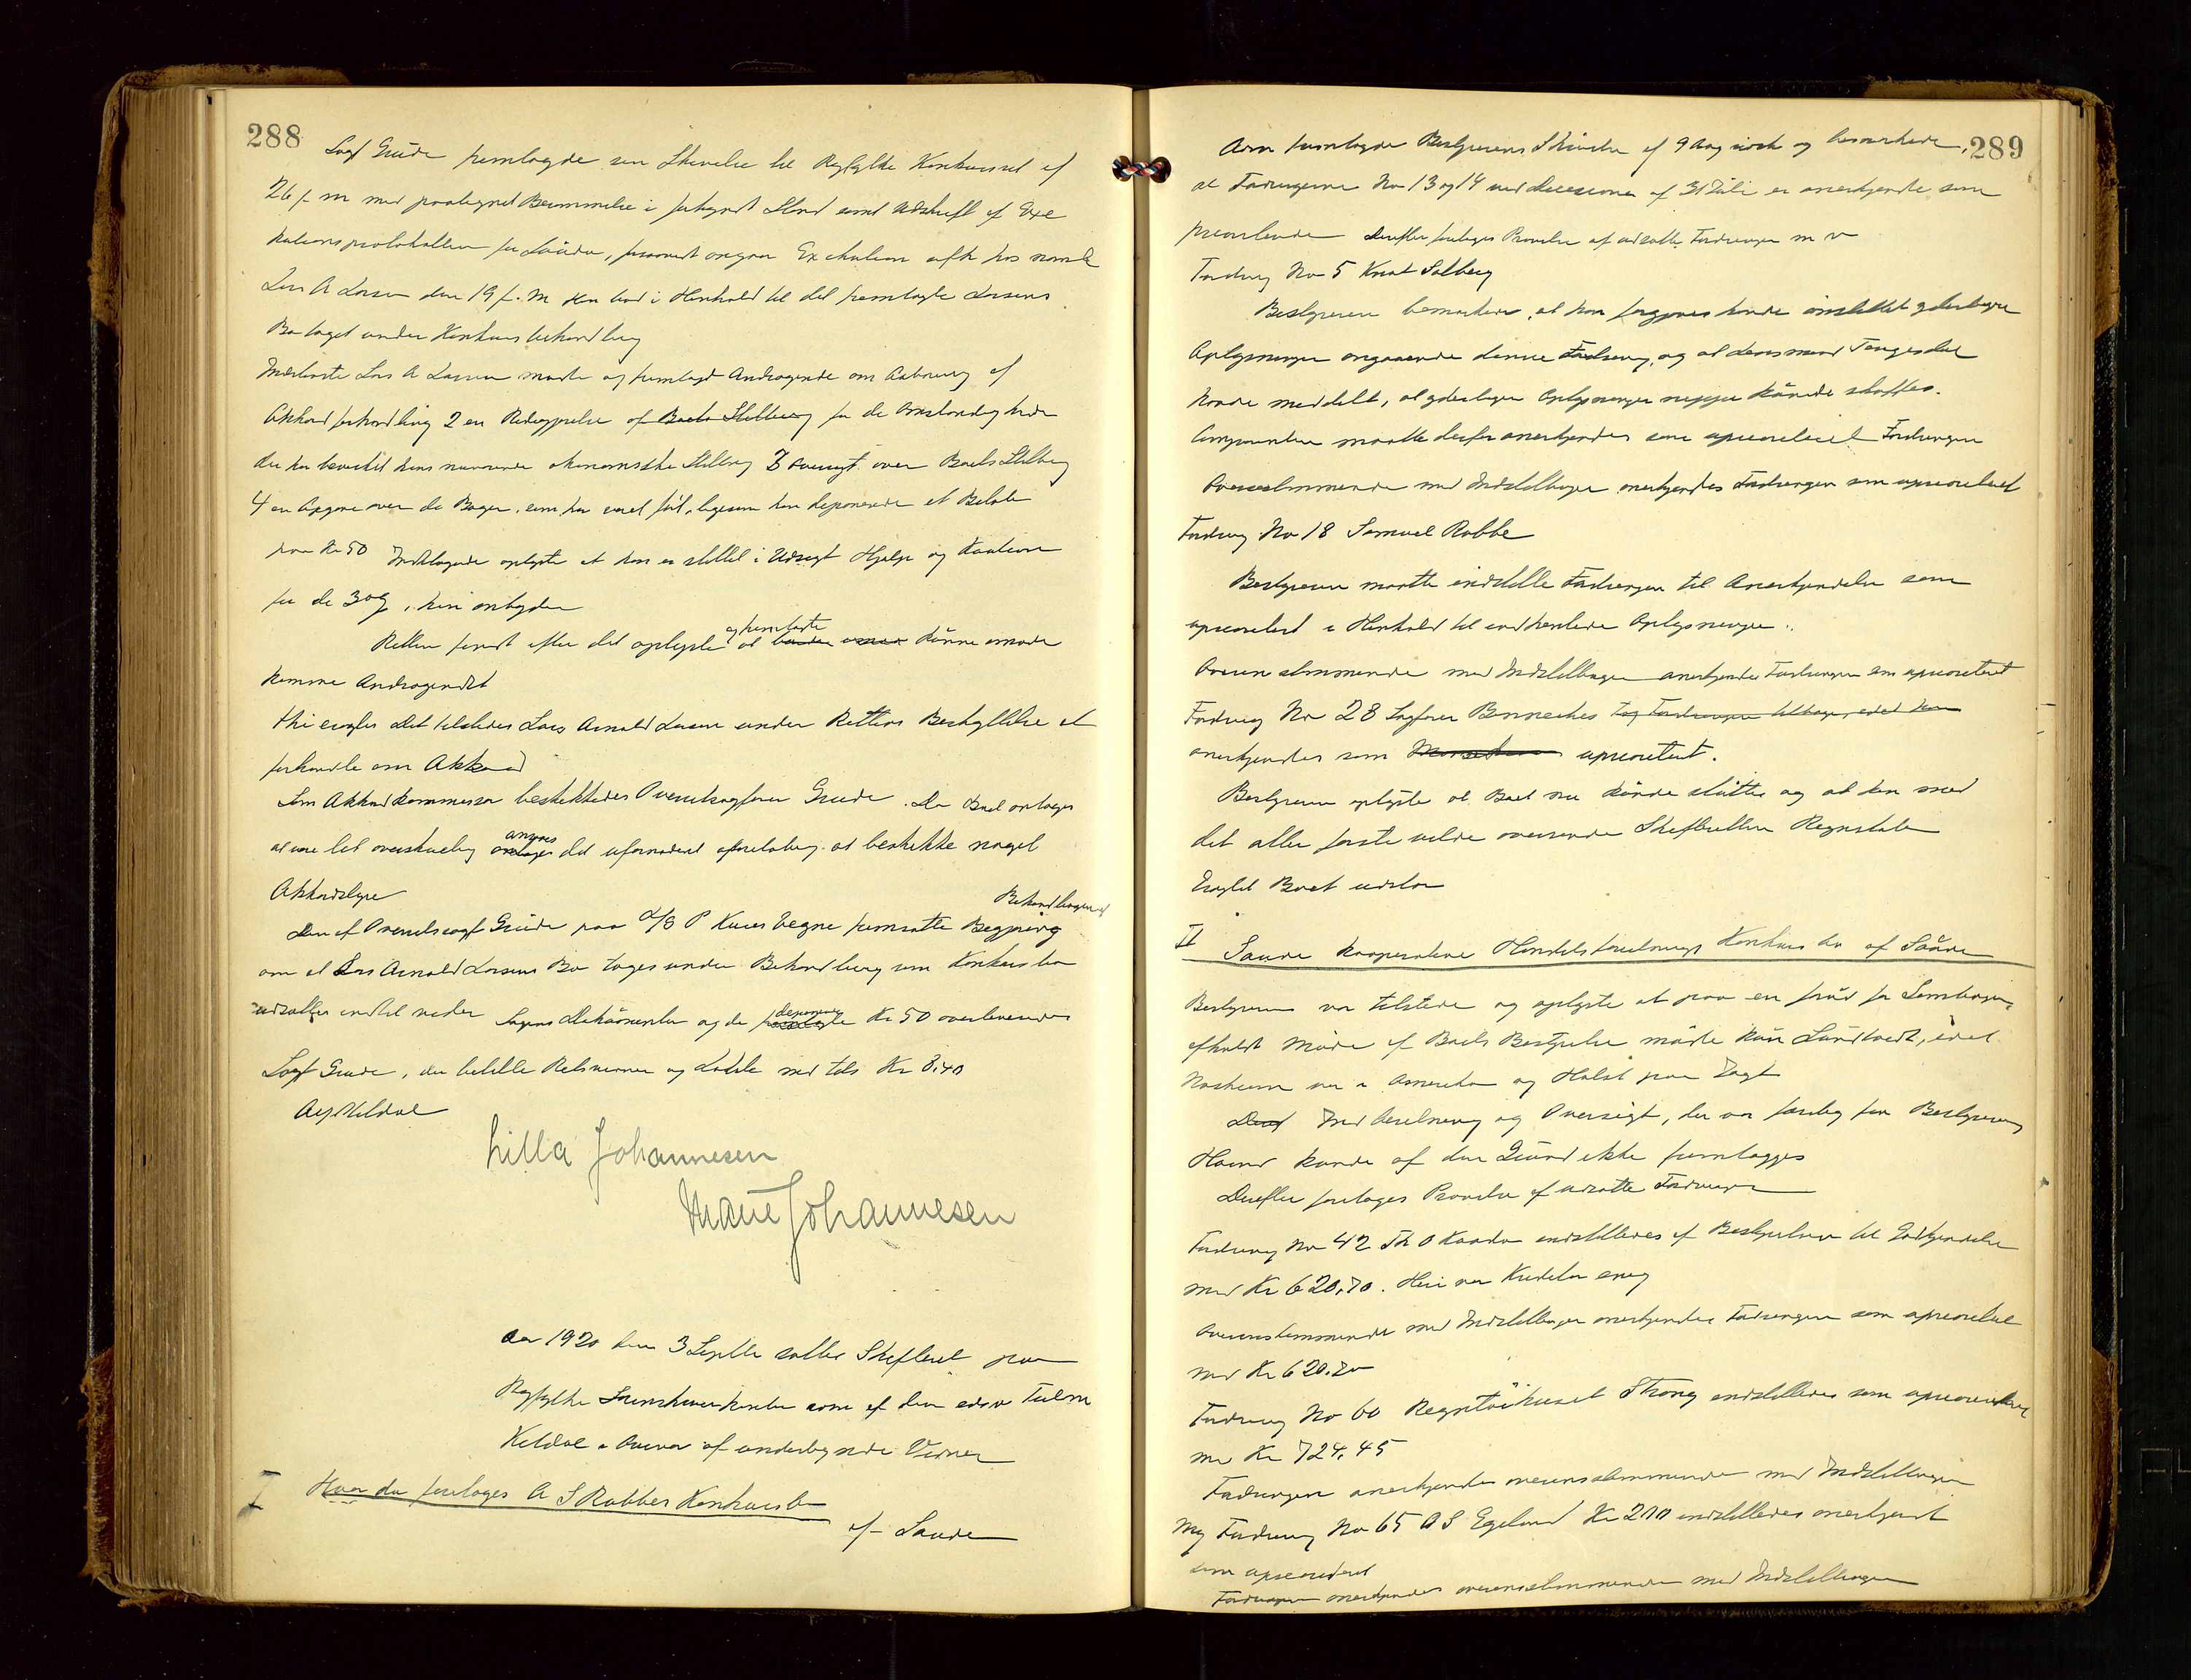 288
Sagf Grude fremlagde sin Skrivelse til Ryfylke Konkursret af
26 f. m med paategnet Berammelse i forkyndt Stand samt Udskrift af Exe
kutionsprotokollen for Saude, forsaavidt angaar Exekution afh hos
Lars A Larsen den 19 f. M Han bad i Henhold til det fremlagte Larsens
Bo taget under Konkursbehandling
Indklagte Lars A Larsen mødte og fremlagde Andragende om Aabning af
Akkordforhandling 2 en Redegjørelse af Boets Stilling for de Omstændigheder
der har bevirket hans nuværende økonomiske Stilling 3 Oversigt over Boets Stilling
4 en Opgave over de Bøger, som har været ført, ligesom han deponerede et Beløb
paa Kr 50 Indklagede oplyste at han er stillet i Udsigt Hjælp og Kaution
for de 30%, han antyder
Retten fandt efter det oplyste og fremlagte at kunne imøde
komme Andragendet
thi eragtes Det tilstedes Lars Arnold Larsen under Rettens Beskyttelse at
forhandle om Akkord
Som Akkordkommissær beskikkedes Overretssagfører Grude. Da Boet antages
at være let overskuelig ansees det ufornødent foreløbig at beskikke noget
Akkordstyre
Behandlingen af
Den af Overretssagf Grude paa A/S P Vegne fremsatte Begjæring
om at Lars Arnold Larsens Bo tages under Behandling som Konkursbo
udsættes indtil videre Sagens Dokumenter og de deponerede Kr 50 overleveredes
Sagf Grude, der betalte Retsvidner og Lokale med tils Kr 8.40
Aug Kildal
Lilla Johannesen
Marie Johannesen
Aar 1920 den 3 Septbr sattes Skifteret paa
Ryfylke Sorenskriverkontor som af den edsv Fuldm
Kildal i Overvær af undertegnede Vidner
I Hvorda foretoges A S Rabbes Konkursbo
af Saude
289
Aarn fremlagde Bestyrerens Skrivelse af 9 Aug sidst og bemærkede,
at Fordringerne No 13 og 14 ved Decisionen af 31 Juli er anerkjendte som
prioriterede Derefter foretoges Prøvelse af udsatte Fordringer m v
Fordring No 5 Knut Solberg
Bestyreren bemærkede, at han forgjæves havde indhentet yderligere
Oplysninger angaaende denne Fordring, og at Lensmand Tengesdal
havde meddelt, at yderligere Oplysninger neppe kunde skaffes.
maatte derfor anerkjendes som uprioriteret Fordringen
Overensstemmende med Indstillingen anerkjendtes Fordringen som uprioriteret
Fordring No 18 Samuel Rabbe
Bestyreren maatte indstille Fordringen til Anerkjendelse som
uprioritert i Henhold til indhentede Oplysninger.
Overensstemmende med Indstillingen anerkjendtes Fordringen som uprioriteret
Fordring No 28 Sagfører Bonneches tog Fordringen tilbage, idet han
anerkjendtes som uprioritert.
Bestyreren oplyste at Boet nu kunde sluttes og at han med
det aller første vilde oversende Skifteretten Regnskaber
Eragtet Boet udstaar
II Saude kooperative Handelsforenings Konkursbo af Saude
Bestyreren var tilstede og oplyste at paa en forud for Samlingen
afholdt Møde af Boets Bestyrelse mødte kun Sundtvedt, idet
var i Amerika og Holst paa Vagt
Indberetning og Oversigt, der var færdig fra Bestyreren
Haand kunde af den Grund ikke fremlægges
Derefter foretoges Prøvelse af udsatte Fordringer
Fordring No 42 Th O Kaada indstilledes af Bestyrelsen til Godkjendelse
med Kr 620.70. Heri var Kreditor enig
Overensstemmende med Indstillingen anerkjendtes Fordringen som uprioritert
med Kr 620.70
Fordring No 60 Regntøihuset Strong indstilledes som uprioriteret
med Kr 724.45
Fordringen anerkjendtes overensstemmende med Indstillingen
Fordring No 65 A S Egeland Kr 210 indstilledes anerkjendt
som uprioriteret
Fordringen anerkjendtes overensstemmende med Indstillingen